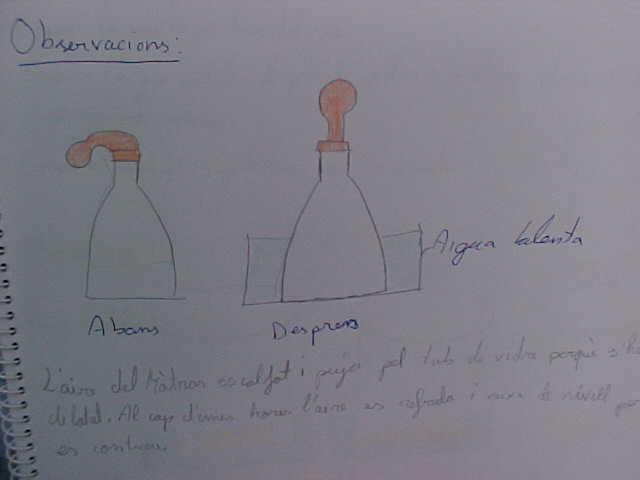 Observacions:
Aigua calenta
Abans Despres
L'aire del Màtras escalfat i puja pel tub de vidre perquè s'ha
dilatat. Al cap d'unes hores l'aire es refreda i baixa de nivell per
es contreu.